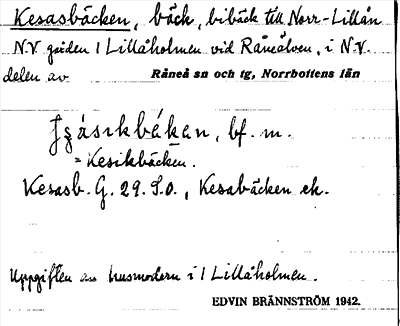 Kesasbäcken, bäck, bibäck till Norr-Lillån
N.V. gården 1 Lillåholmen vid Råneälven, i N.V.
delen av Råneå sn och tg, Norrbottens län
bf. m.
= Kesikbäcken.
Kesasb. G. 29. S.O., Kesabäcken ek.
Uppgiften av husmodern i 1 Lillåholmen.
EDVIN BRÄNNSTRÖM 1942.